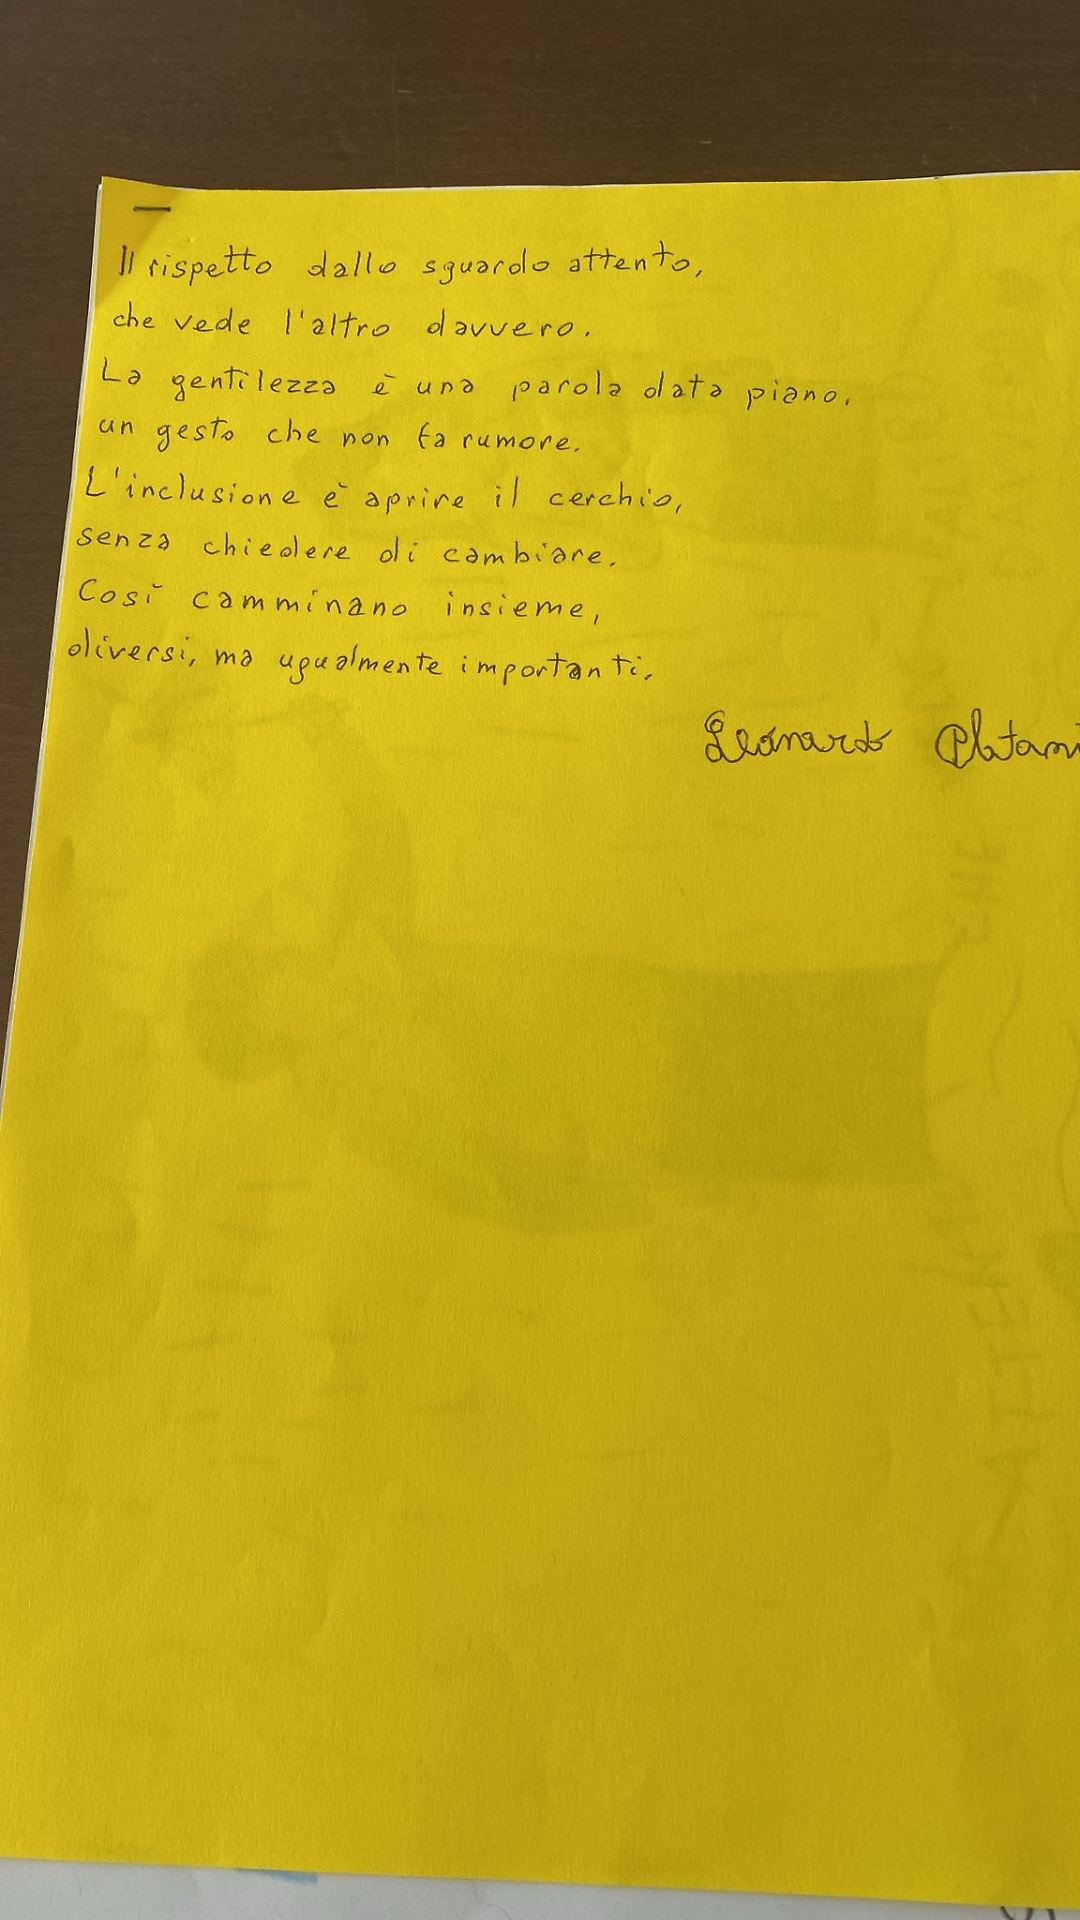 Il rispetto dallo sguardo attento,
che vede l'altro davvero.
La gentilezza è una parola data piano,
un gesto che non fa rumore.
L'inclusione è aprire il cerchio,
senza chiedere di cambiare.
Così camminano insieme,
diversi, ma ugualmente importanti.
Leonardo